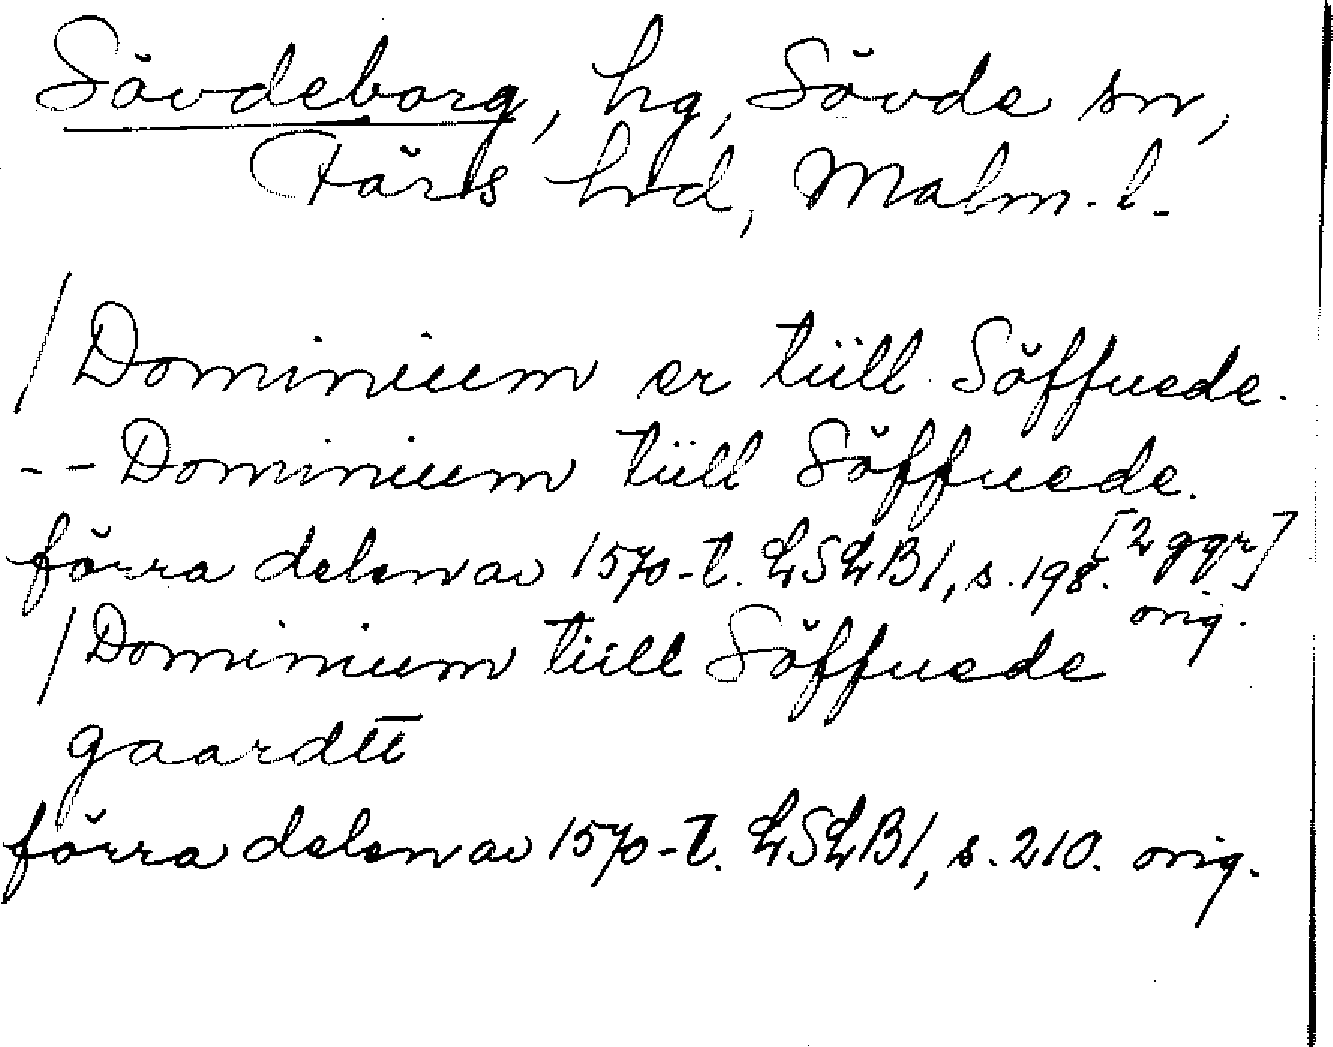 Sövdeborg, hg, Sövde sn,
Färs hrd, Malm. l.
/ Dominium er tüll Söffuede.
-- Dominium tüll Söffuede.
förra delen av 1570-t. LSLB1, s. 198. [2 ggr]
orig.
/ Dominium tüll Söffuede
gaardtt
förra delen av 1570-t. LSLB1, s. 210. orig.